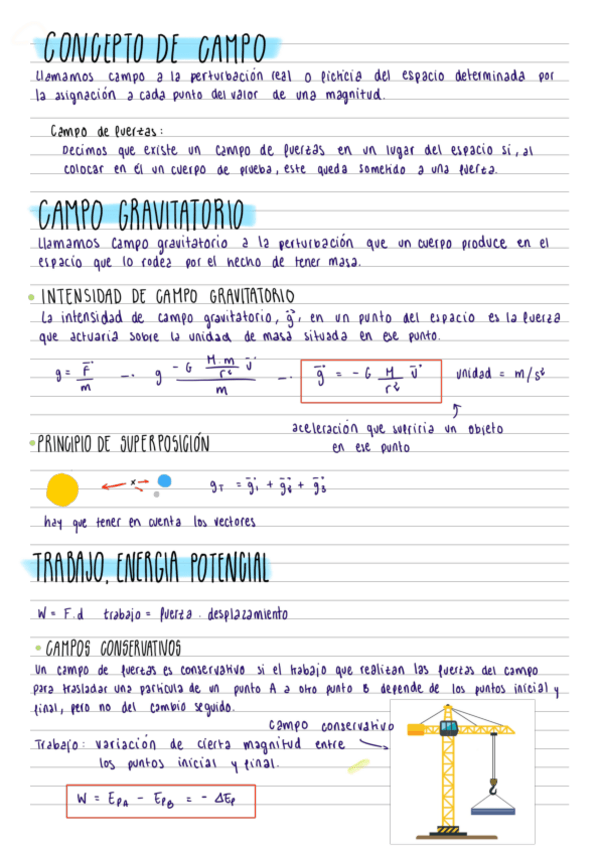 CONCEPTO DE CAMPO
Llamamos campo a la perturbación real o ficticia del espacio determinada por
la asignación a cada punto del valor de una magnitud.
Campo de fuerzas:
Decimos que existe un campo de fuerzas en un lugar del espacio si, al
colocar en él un cuerpo de prueba, este queda sometido a una fuerza.
CAMPO GRAVITATORIO
Llamamos campo gravitatorio a la perturbación que un cuerpo produce en el
espacio que lo rodea por el hecho de tener masa.
• INTENSIDAD DE CAMPO GRAVITATORIO
La intensidad de campo gravitatorio, g⃗, en un punto del espacio es la fuerza
que actuaría sobre la unidad de masa situada en ese punto.
g = F⃗/m → g = (-G M·m/r² u⃗)/m → g⃗ = -G M/r² u⃗ unidad = m/s²
aceleración que sufriría un objeto
en ese punto
• PRINCIPIO DE SUPERPOSICIÓN
x
gT = g⃗1 + g⃗2 + g⃗3
hay que tener en cuenta los vectores
TRABAJO, ENERGIA POTENCIAL
W = F.d trabajo = fuerza . desplazamiento
• CAMPOS CONSERVATIVOS
Un campo de fuerzas es conservativo si el trabajo que realizan las fuerzas del campo
para trasladar una partícula de un punto A a otro punto B depende de los puntos inicial y
final, pero no del cambio seguido.
campo conservativo
Trabajo: variación de cierta magnitud entre
los puntos inicial y final.
W = EpA - EpB = - ΔEp